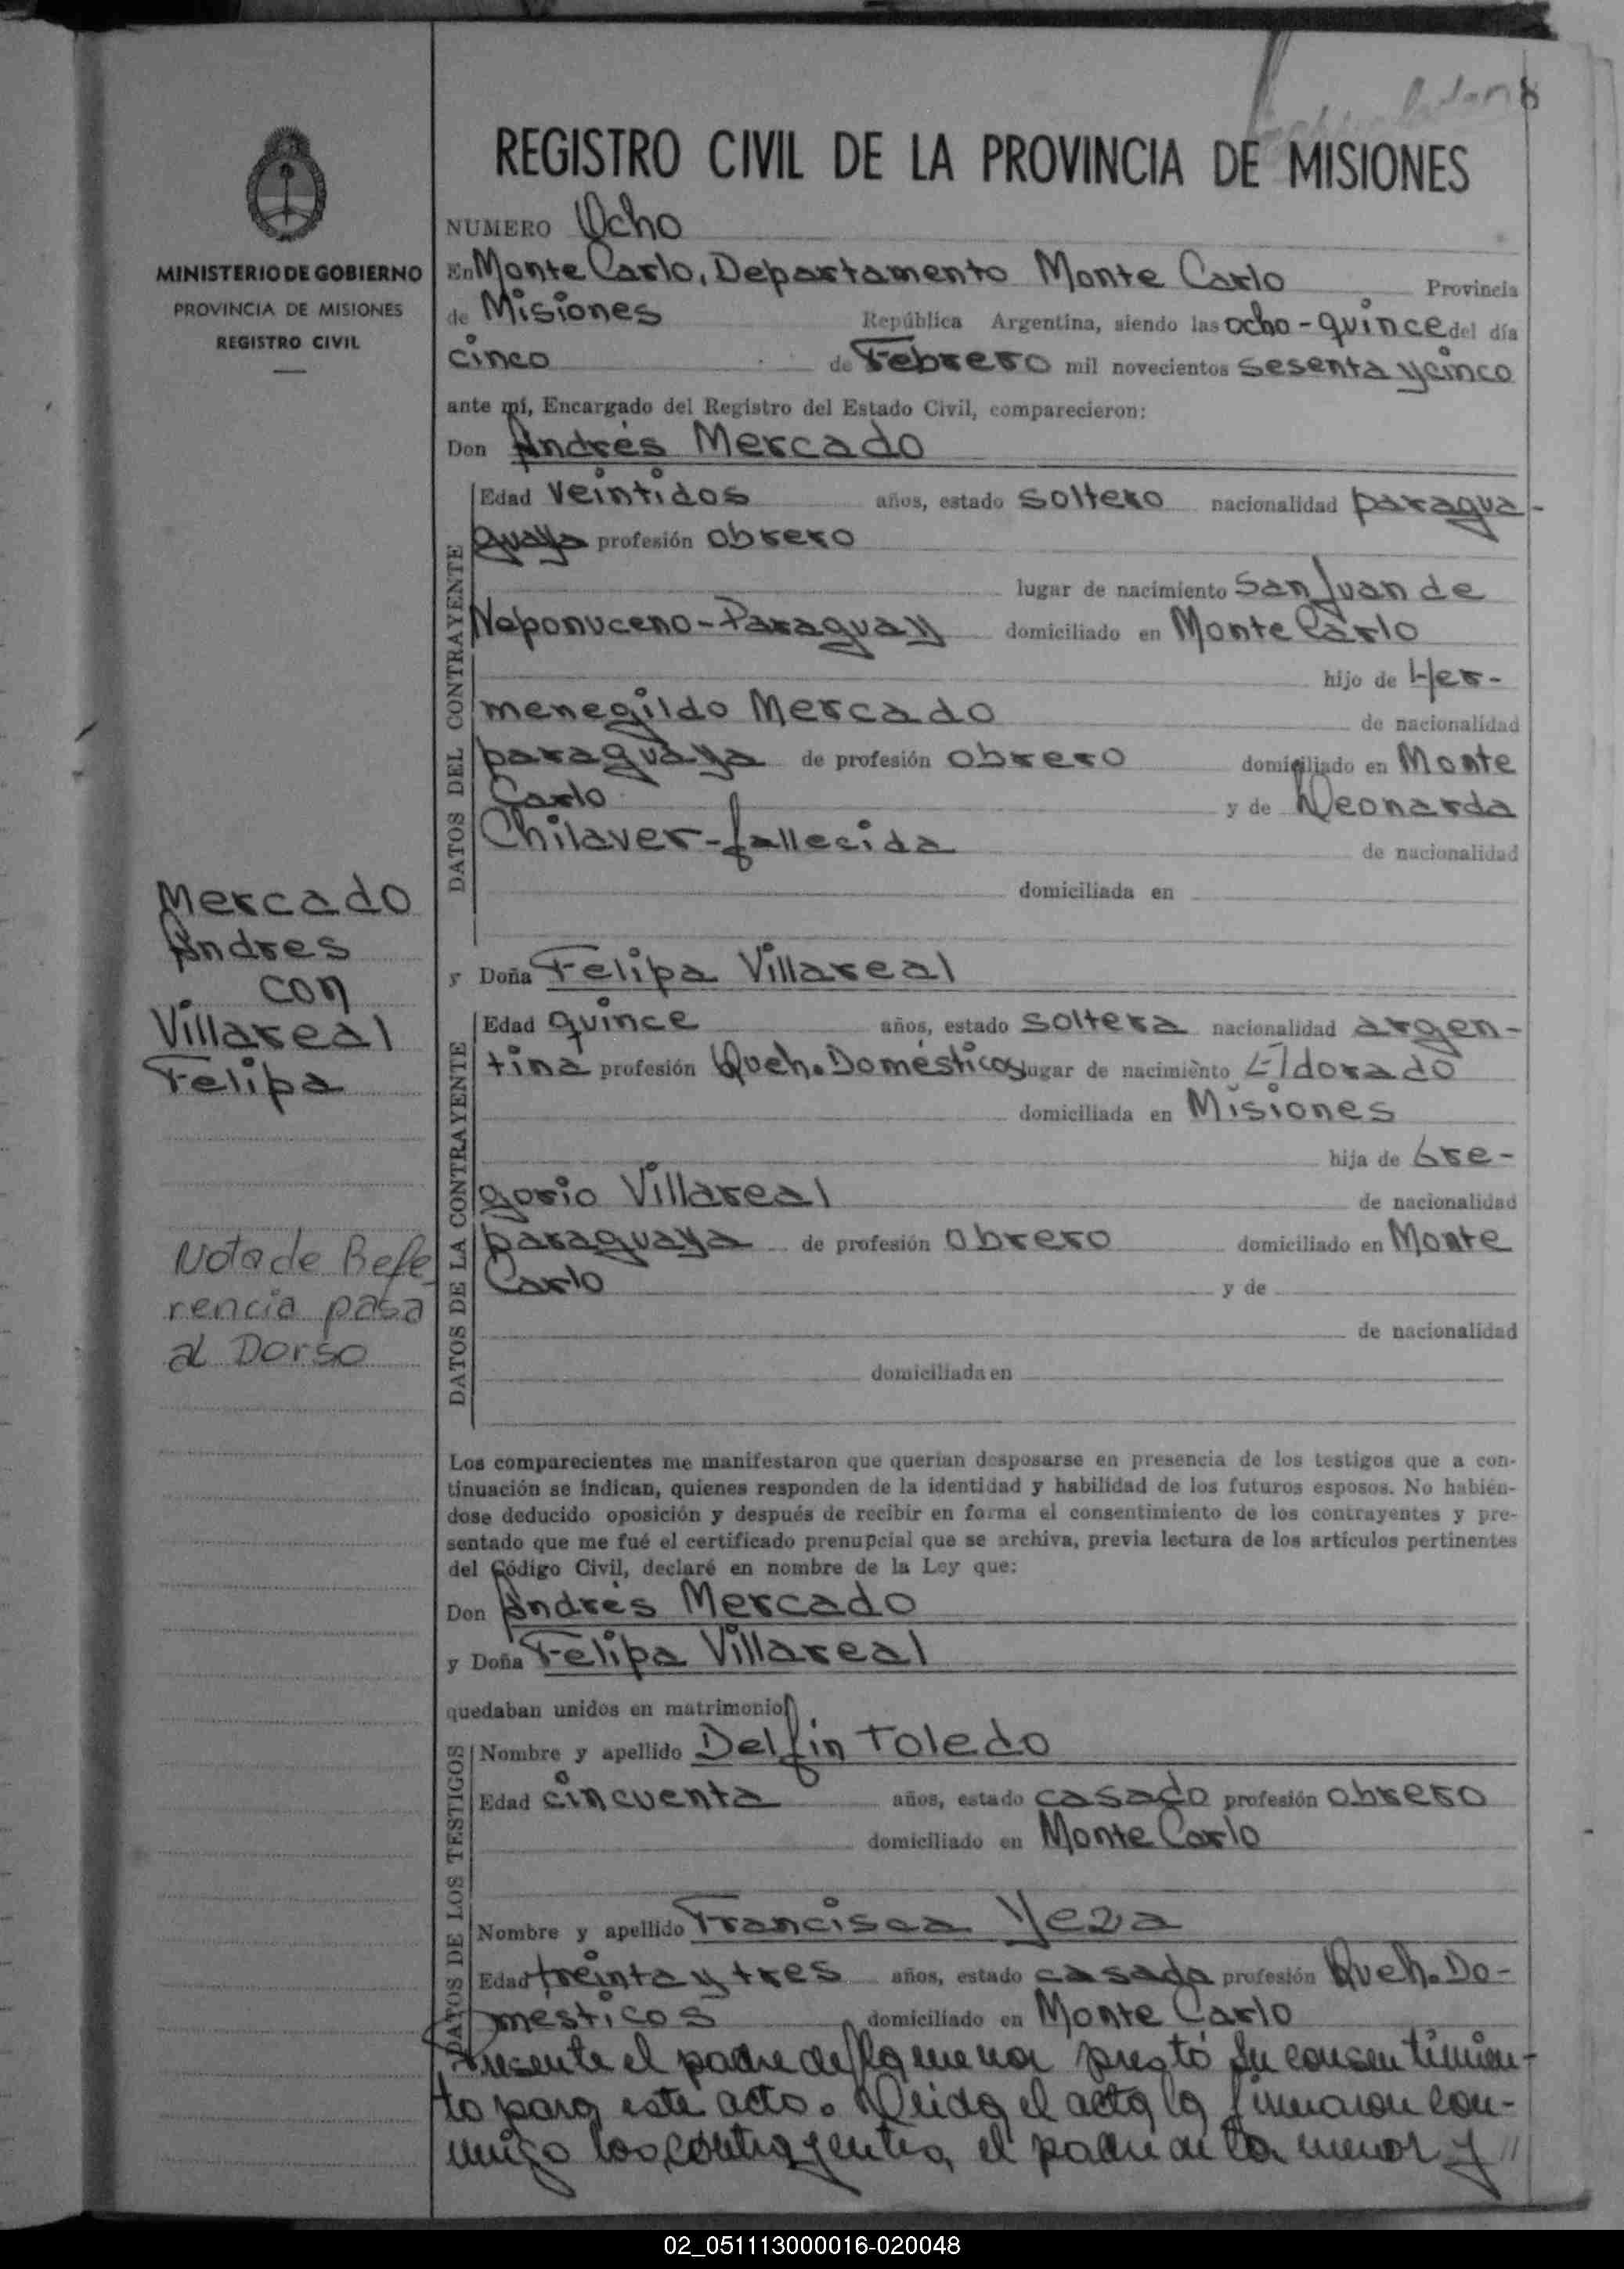 8
REGISTRO CIVIL DE LA PROVINCIA DE MISIONES
MINISTERIO DE GOBIERNO
PROVINCIA DE MISIONES
REGISTRO CIVIL
NUMERO Ocho
En Monte Carlo, Departamento Monte Carlo Provincia
de Misiones República Argentina, siendo las ocho-quince del día
cinco de Febrero mil novecientos sesenta y cinco
ante mí, Encargado del Registro del Estado Civil, comparecieron:
Don Andrés Mercado
DATOS DEL CONTRAYENTE
Edad veintidos años, estado soltero nacionalidad paragua-
guaya profesión obrero
lugar de nacimiento San Juan de
Neponuceno-Paraguay domiciliado en Monte Carlo
hijo de Her-
menegildo Mercado de nacionalidad
paraguaya de profesión obrero domiciliado en Monte
Carlo y de Leonarda
Chilaver-fallecida de nacionalidad
domiciliada en
Mercado
Andres
con
Villareal
Felipa
y Doña Felipa Villareal
DATOS DE LA CONTRAYENTE
Edad quince años, estado soltera nacionalidad argen-
tina profesión Queh. Domésticos lugar de nacimiento Eldorado
domiciliada en Misiones
hija de Gre-
gorio Villareal de nacionalidad
paraguaya de profesión obrero domiciliado en Monte
Carlo y de
de nacionalidad
domiciliada en
Nota de Refe
rencia pasa
al Dorso
Los comparecientes me manifestaron que querían desposarse en presencia de los testigos que a con-
tinuación se indican, quienes responden de la identidad y habilidad de los futuros esposos. No habién-
dose deducido oposición y después de recibir en forma el consentimiento de los contrayentes y pre-
sentado que me fué el certificado prenupcial que se archiva, previa lectura de los artículos pertinentes
del Código Civil, declaré en nombre de la Ley que:
Don Andrés Mercado
y Doña Felipa Villareal
quedaban unidos en matrimonio
DATOS DE LOS TESTIGOS
Nombre y apellido Delfin Toledo
Edad cincuenta años, estado casado profesión obrero
domiciliado en Monte Carlo
Nombre y apellido Francisca Yeza
Edad treinta y tres años, estado casada profesión Queh. Do-
mesticos domiciliado en Monte Carlo
Presente el padre de la menor prestó su consentimien-
to para este acto. Leida el acta la firmaron con-
migo los contrayentes, el padre de la menor y //
02_051113000016-020048